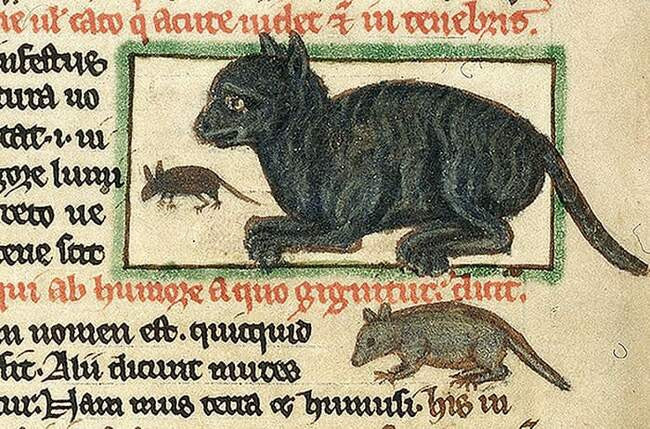 ul' cato q̄ acute uidet ⁊ in tenebris.
nfestus
tura uo
tat. i. ui
gore lumi
reto ue
qui ab humore a quo gignitur. dicit.
nomen est. quicquid
fit. Alii dicunt mures
tur. Nam mus terra & humus. his in